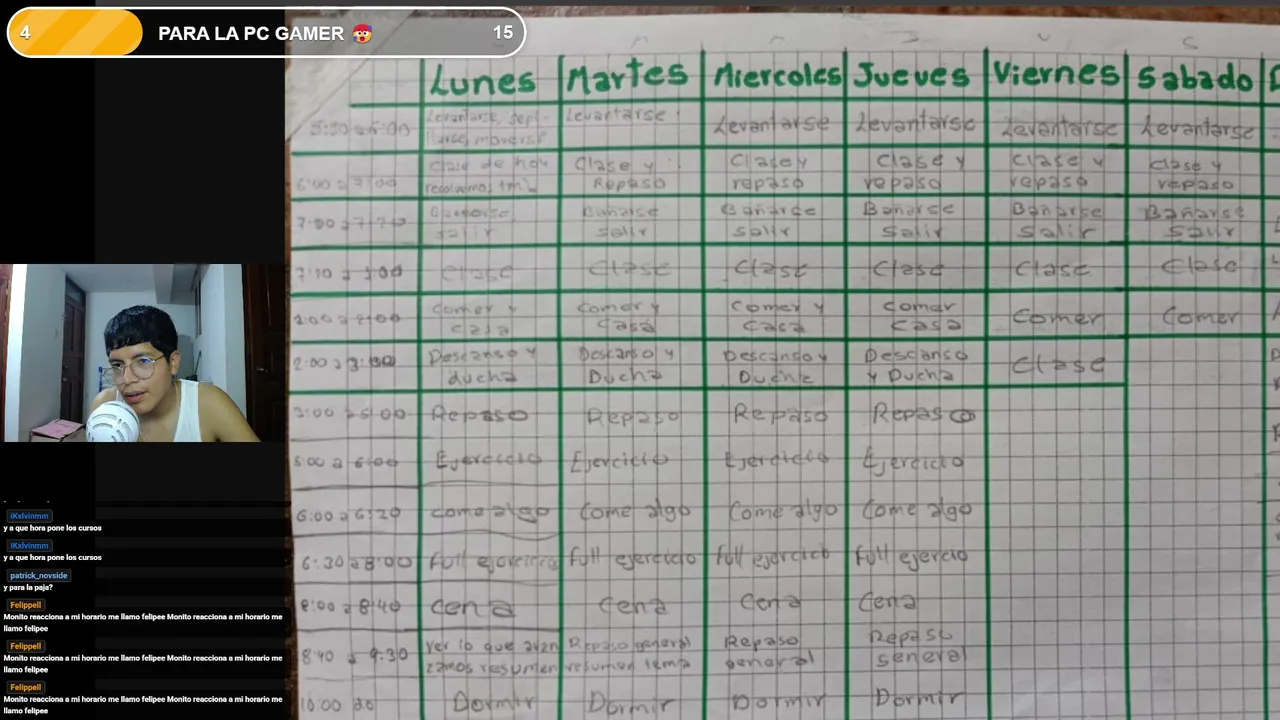 4 PARA LA PC GAMER 15
Lunes Martes Miercoles Jueves Viernes Sabado
5:30 a 6:00 Levantarse, Levantarse Levantarse Levantarse Levantarse Levantarse
6:00 a 7:00 Clase y Repaso Clase y repaso Clase y repaso Clase y repaso Clase y repaso
salir Bañarse salir Bañarse salir Bañarse salir Bañarse salir Bañarse salir
Clase Clase Clase Clase Clase Clase
Comer y casa Comer y casa Comer y casa Comer casa Comer Comer
Descanso y ducha Descanso y Ducha Descanso y Ducha Descanso y Ducha Clase
Repaso Repaso Repaso Repaso
5:00 a 6:00 Ejercicio Ejercicio Ejercicio Ejercicio
6:00 a 6:20 come algo Come algo Come algo Come algo
6:30 a 8:00 Full ejercicio Full ejercicio Full ejercicio Full ejercio
8:00 a 8:40 Cena Cena Cena Cena
8:40 a 9:30 ver lo que avanzamos resumen Repaso general resumen tema Repaso general Repaso general
10:00 Dormir Dormir Dormir Dormir
iKxlvinmm
y a que hora pone los cursos
iKxlvinmm
y a que hora pone los cursos
patrick_novside
y para la paja?
Felippell
Monito reacciona a mi horario me llamo felipee Monito reacciona a mi horario me
llamo felipee
Felippell
Monito reacciona a mi horario me llamo felipee Monito reacciona a mi horario me
llamo felipee
Felippell
Monito reacciona a mi horario me llamo felipee Monito reacciona a mi horario me
llamo felipee